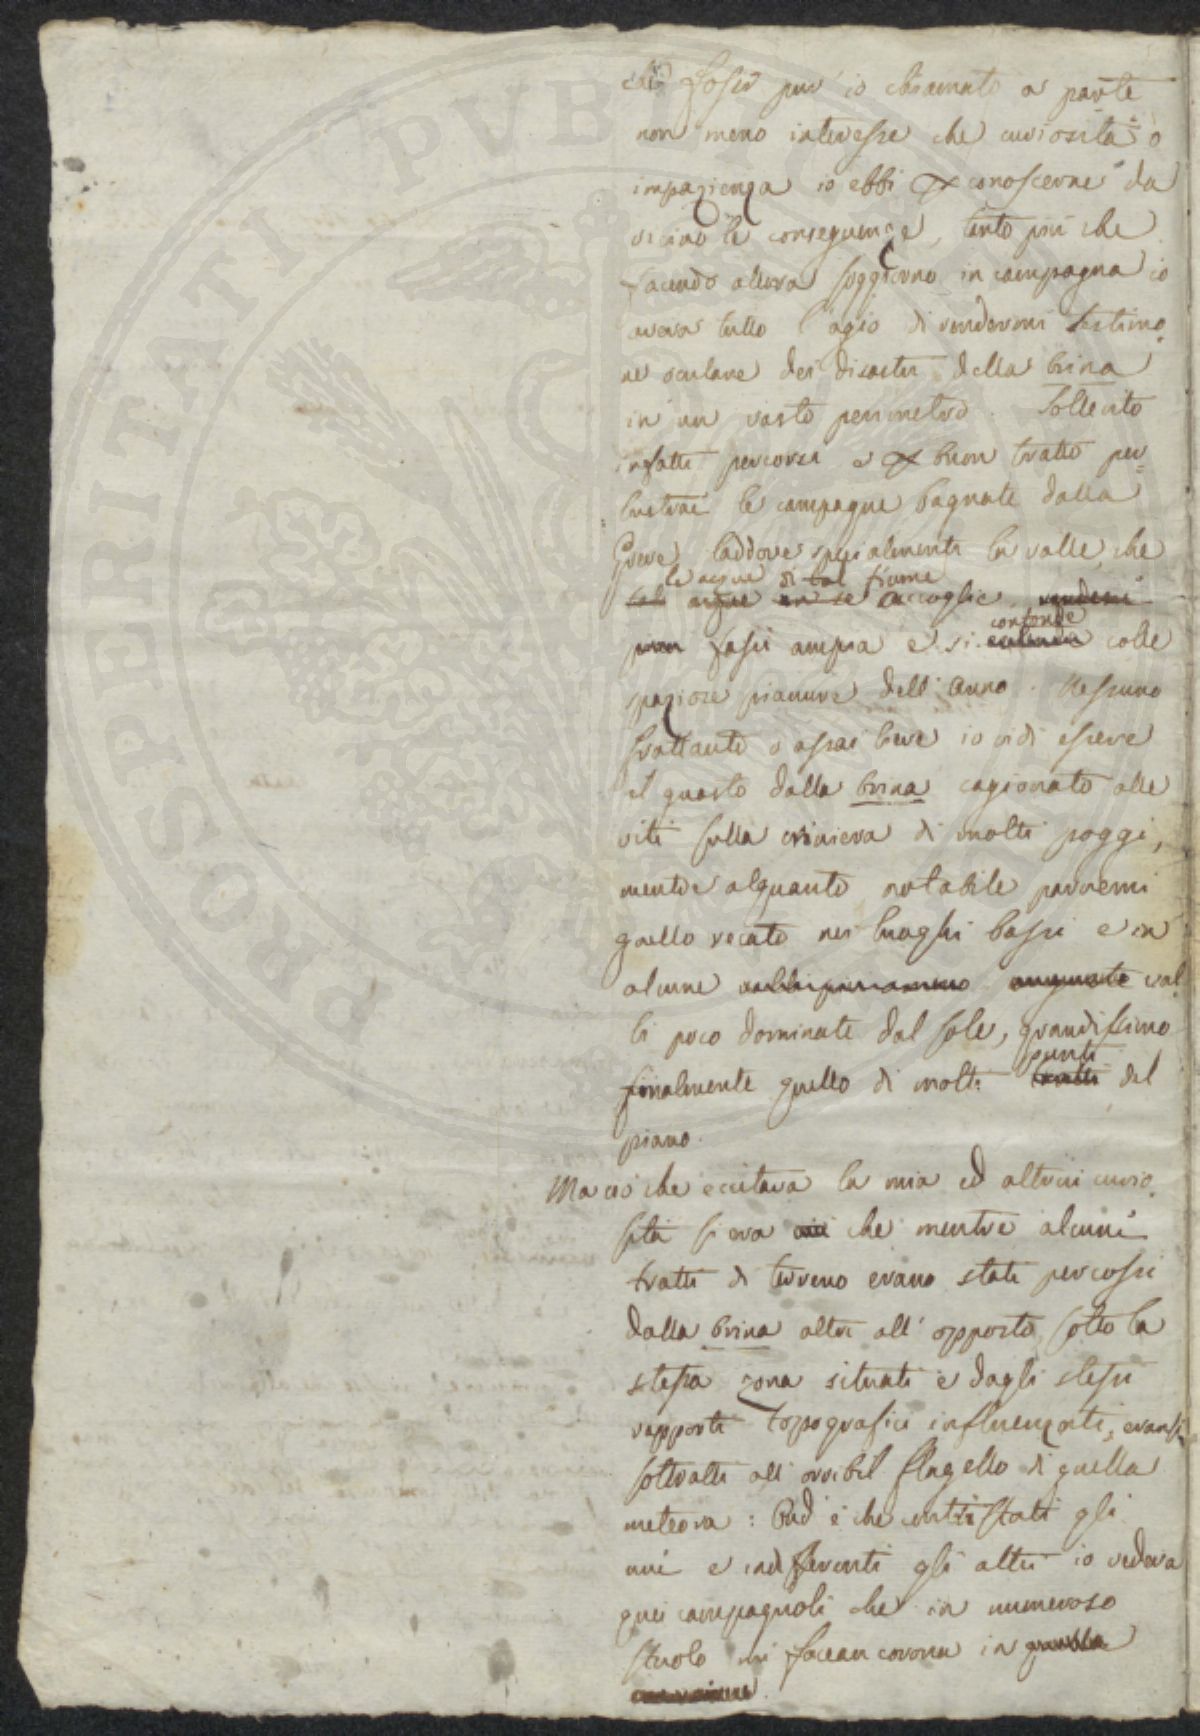 che fossi pur' io chiamato a parte
non meno interesse che curiosità o
impazienza io ebbi di conoscerne da
vicino le conseguenze, tanto più che
facendo allora soggiorno in campagna io
aveva tutto l'agio di rendermi testimo
ne oculare dei disastri della brina
in un vasto perimetro. Sollecito
infatti percorsi e buon tratto per
lustrai le campagne bagnate dalla
Greve laddove specialmente la valle, che
le acque di tal fiume
tali acque in se accoglie,
confonde
non fassi ampia e si colle
spaziose pianure dell'Arno. Nessuno
frattanto o assai lieve io vidi essere
il guasto dalla brina cagionato alle
viti sulla criniera di molti poggi,
mentre alquanto notabile parvemi
quello recato nei luoghi bassi e in
alcune val
li poco dominate dal sole, grandissimo
punti
finalmente quello di molti tratti del
piano.
Ma ciò che eccitava la mia ed altrui curio
sità si era che mentre alcuni
tratti di terreno erano stati percossi
dalla brina altri all'opposto sotto la
stessa zona situati e dagli stessi
rapporti topografici influenzati, eransi
sottratti all'orribil flagello di quella
meteora: Quid è che contristati gli
uni e indifferenti gli altri io vedeva
quei campagnoli che in numeroso
stuolo mi facean corona in quella